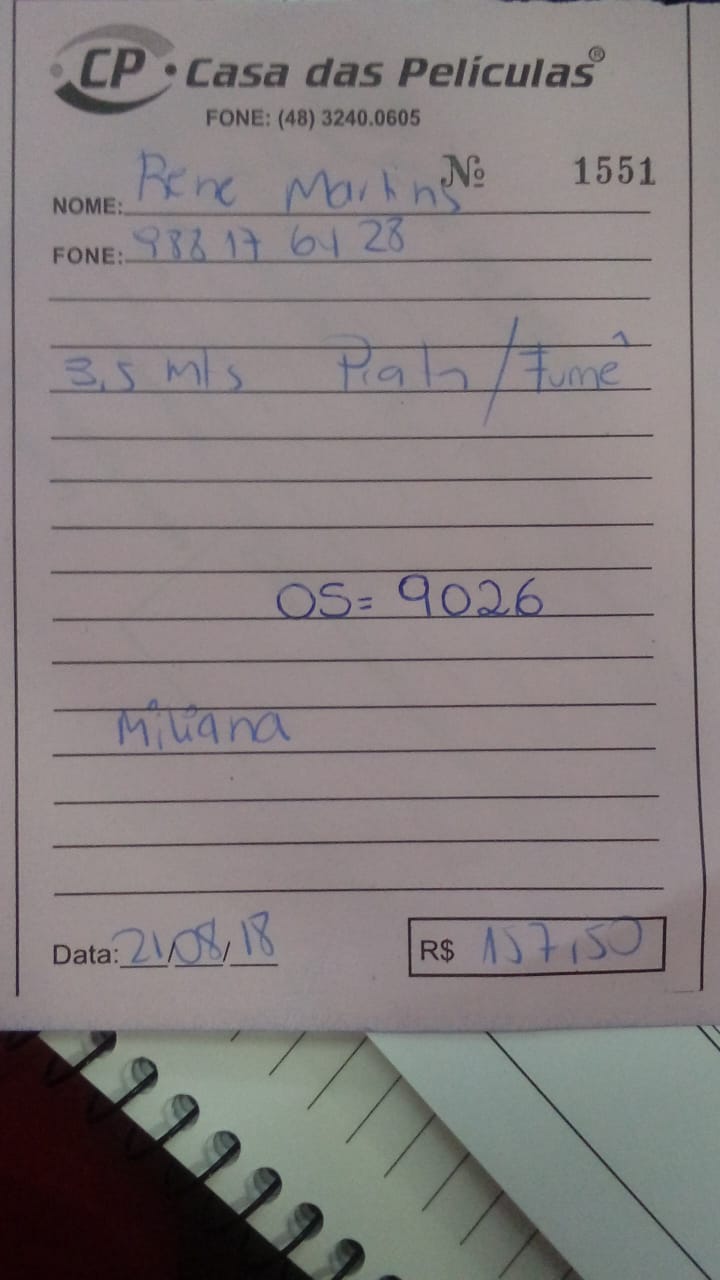 CP • Casa das Películas®
FONE: (48) 3240.0605
Nº 1551
NOME: Rene Martins
FONE: 98817 6428
3,5 mts Prata / Fumê
OS= 9026
Miliana
Data: 21/08/18 R$ 157,50